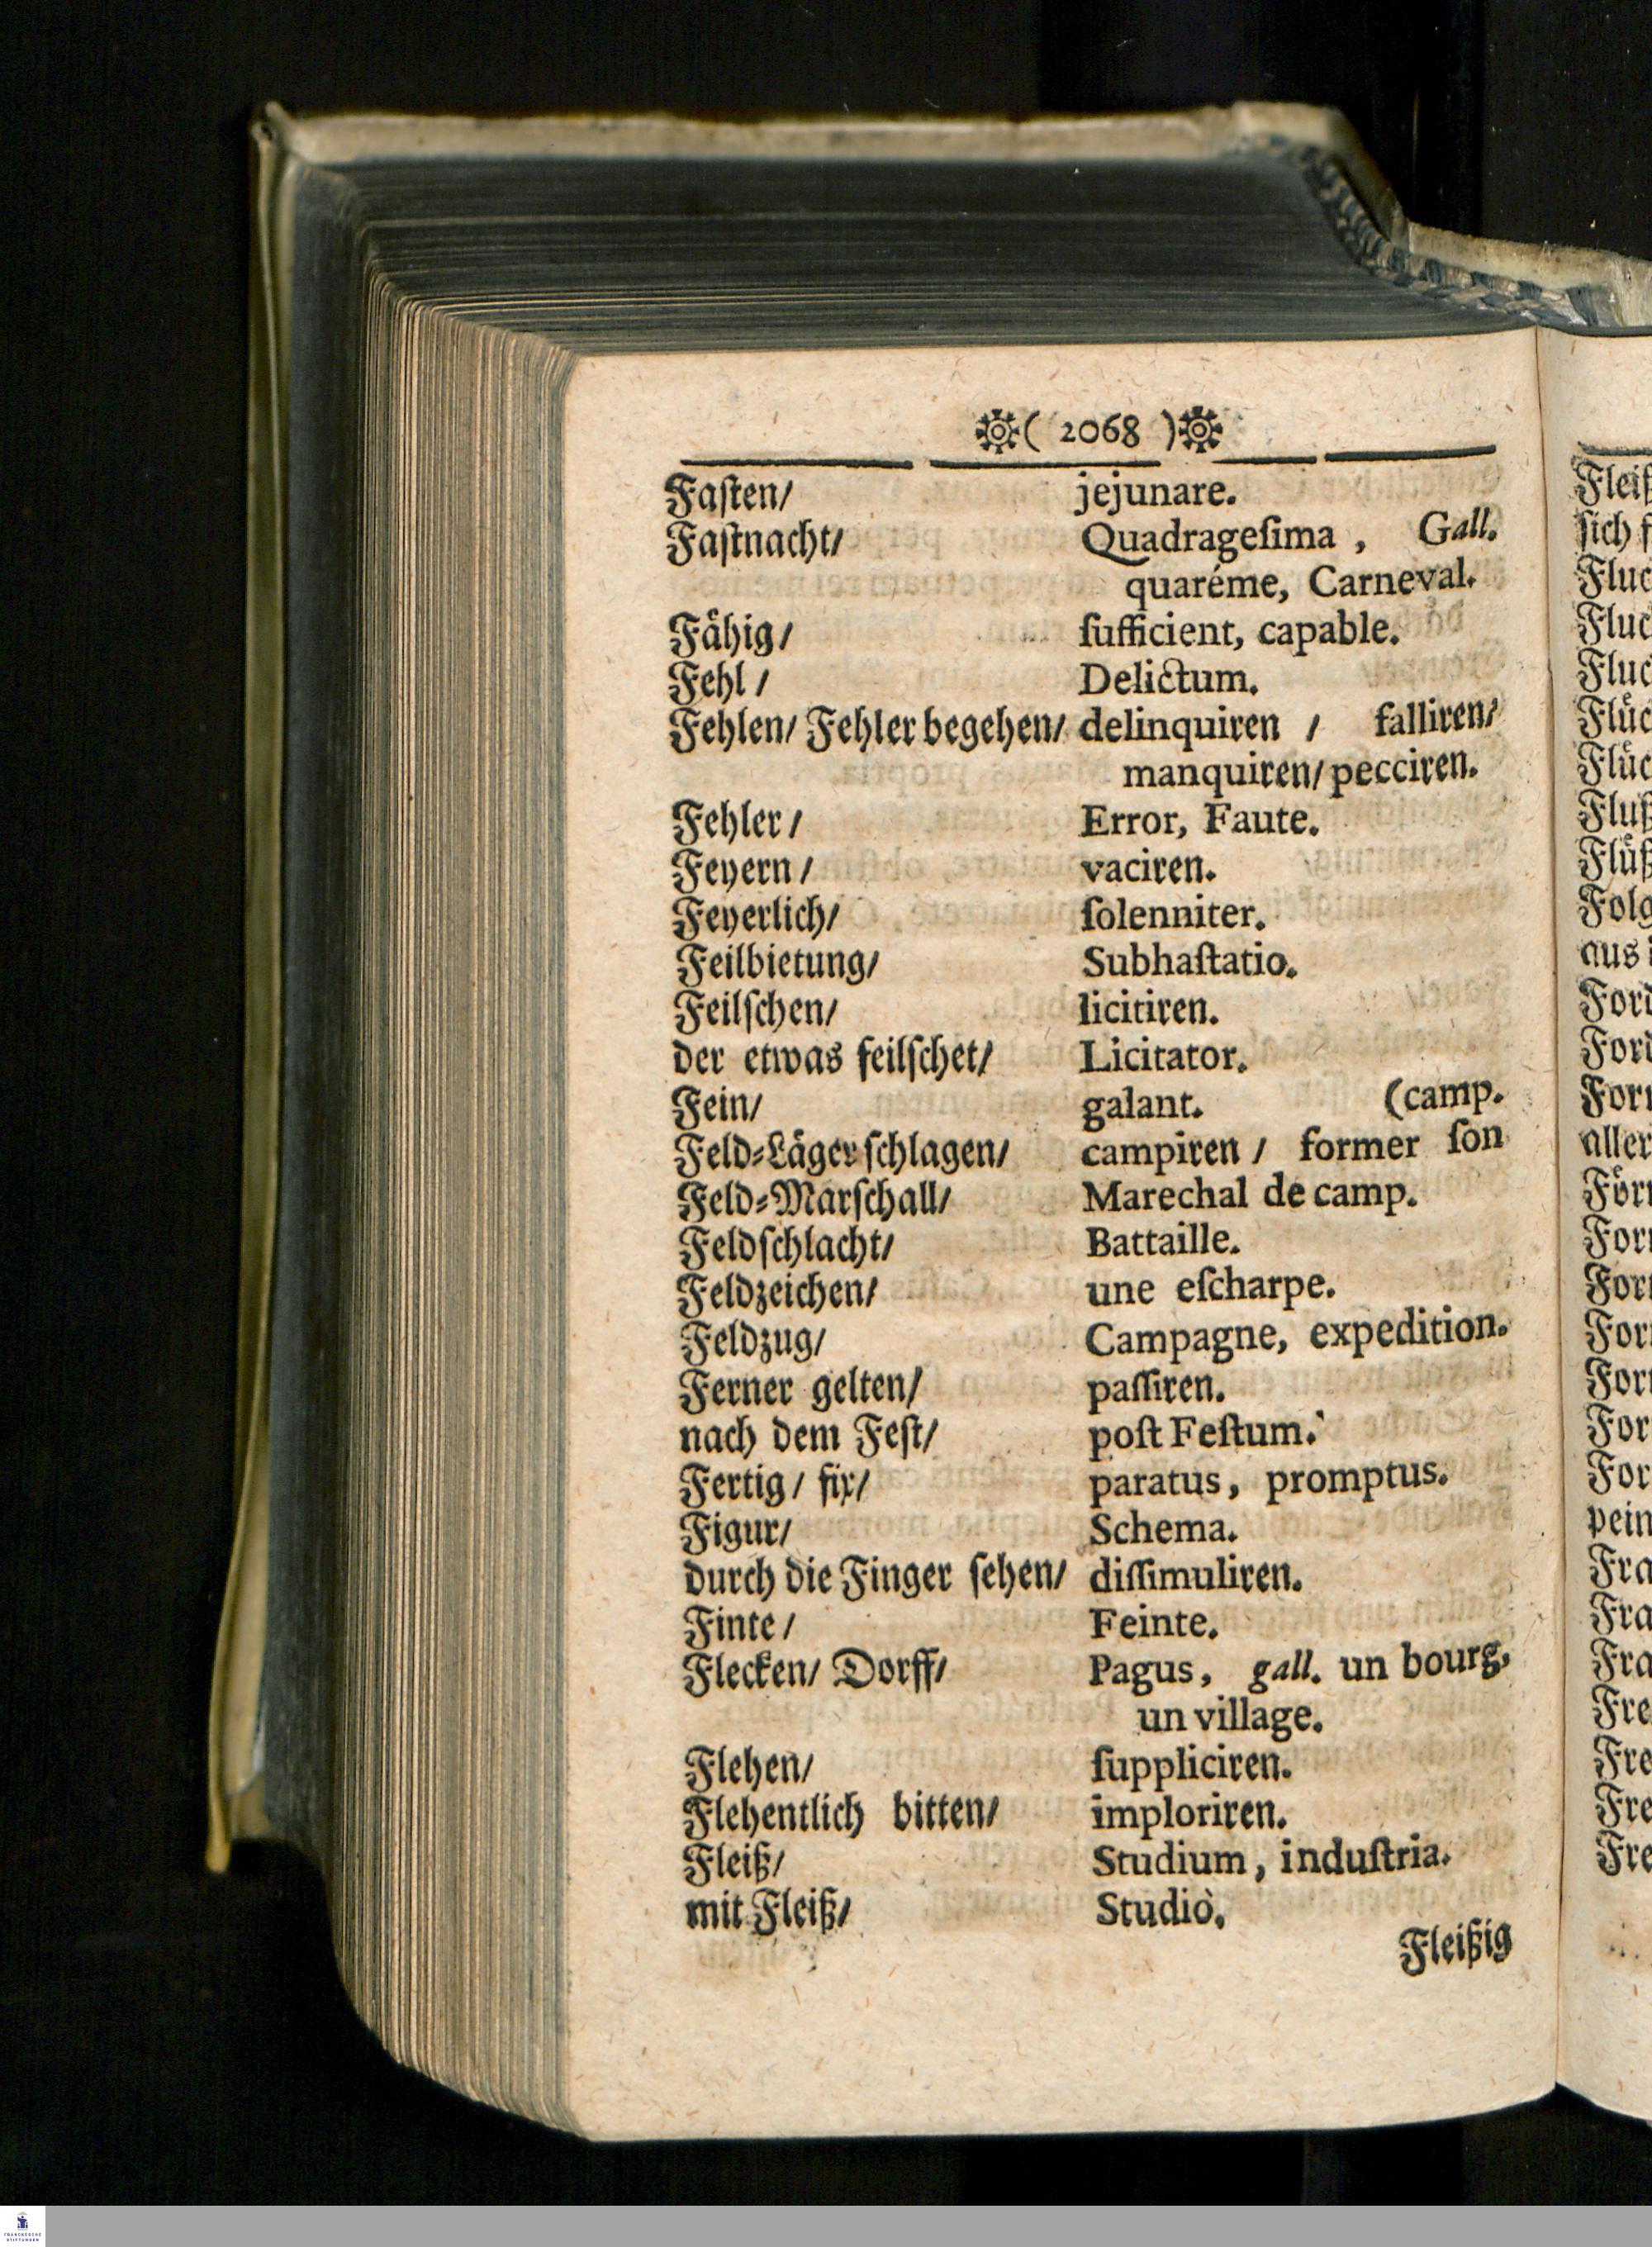 ( 2068 )
Faſten/ jejunare.
Faſtnacht/ Quadrageſima , Gall.
quaréme, Carneval.
Fähig/ ſufficient, capable.
Fehl / Delictum.
Fehlen/ Fehler begehen/ delinquiren / falliren/
manquiren/ pecciren.
Fehler / Error, Faute.
Feyern / vaciren.
Feyerlich/ ſolenniter.
Feilbietung/ Subhaſtatio.
Feilſchen/ licitiren.
der etwas feilſchet/ Licitator.
Fein/ galant. (camp.
Feld-Läger ſchlagen/ campiren / former ſon
Feld-Marſchall/ Marechal de camp.
Feldſchlacht/ Battaille.
Feldzeichen/ une eſcharpe.
Feldzug/ Campagne, expedition.
Ferner gelten/ paſſiren.
nach dem Feſt/ poſt Feſtum.
Fertig / fix/ paratus, promptus.
Figur/ Schema.
durch die Finger ſehen/ diſſimuliren.
Finte / Feinte.
Flecken/ Dorff/ Pagus, gall. un bourg,
un village.
Flehen/ ſuppliciren.
Flehentlich bitten/ imploriren.
Fleiß/ Studium, induſtria.
mit Fleiß/ Studiò.
Fleißig
FRANCKESCHE
STIFTUNGEN